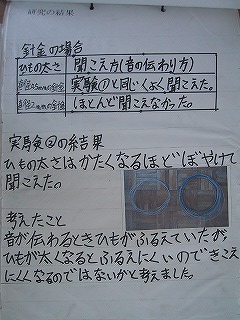 研究の結果
針金の場合
ひもの太さ 聞こえ方(音の伝わり方)
実験①と同じくよく聞こえた。
ほとんど聞こえなかった。
実験②の結果
ひもの太さはかたくなるほどぼやけて
聞こえた。
考えたこと
音が伝わるときひもがふるえていたが、
ひもが太くなるとふるえにくいのできこえ
にくくなるのではないかと考えました。